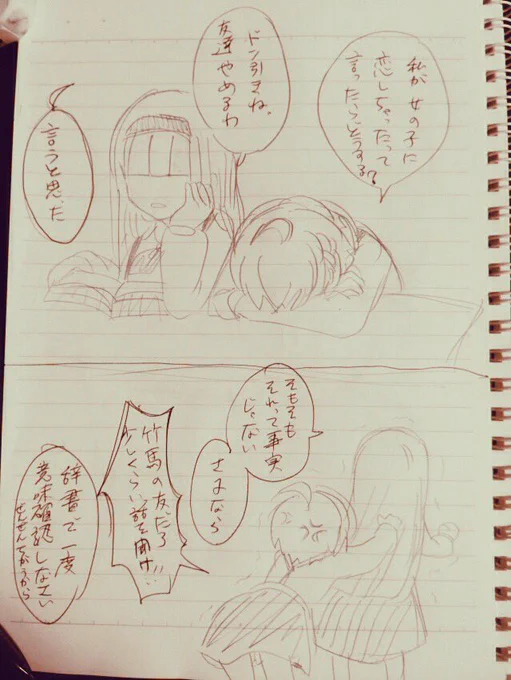 私が女の子に
恋しちゃったって
言ったらどうする?
ドン引きね、
友達やめるわ
言うと思た
そもそも
それって事実
じゃない
さよなら
竹馬の友だろ
少しくらい話を聞け!!
辞書で一度
意味確認しなさい
ぜんぜんちがうから